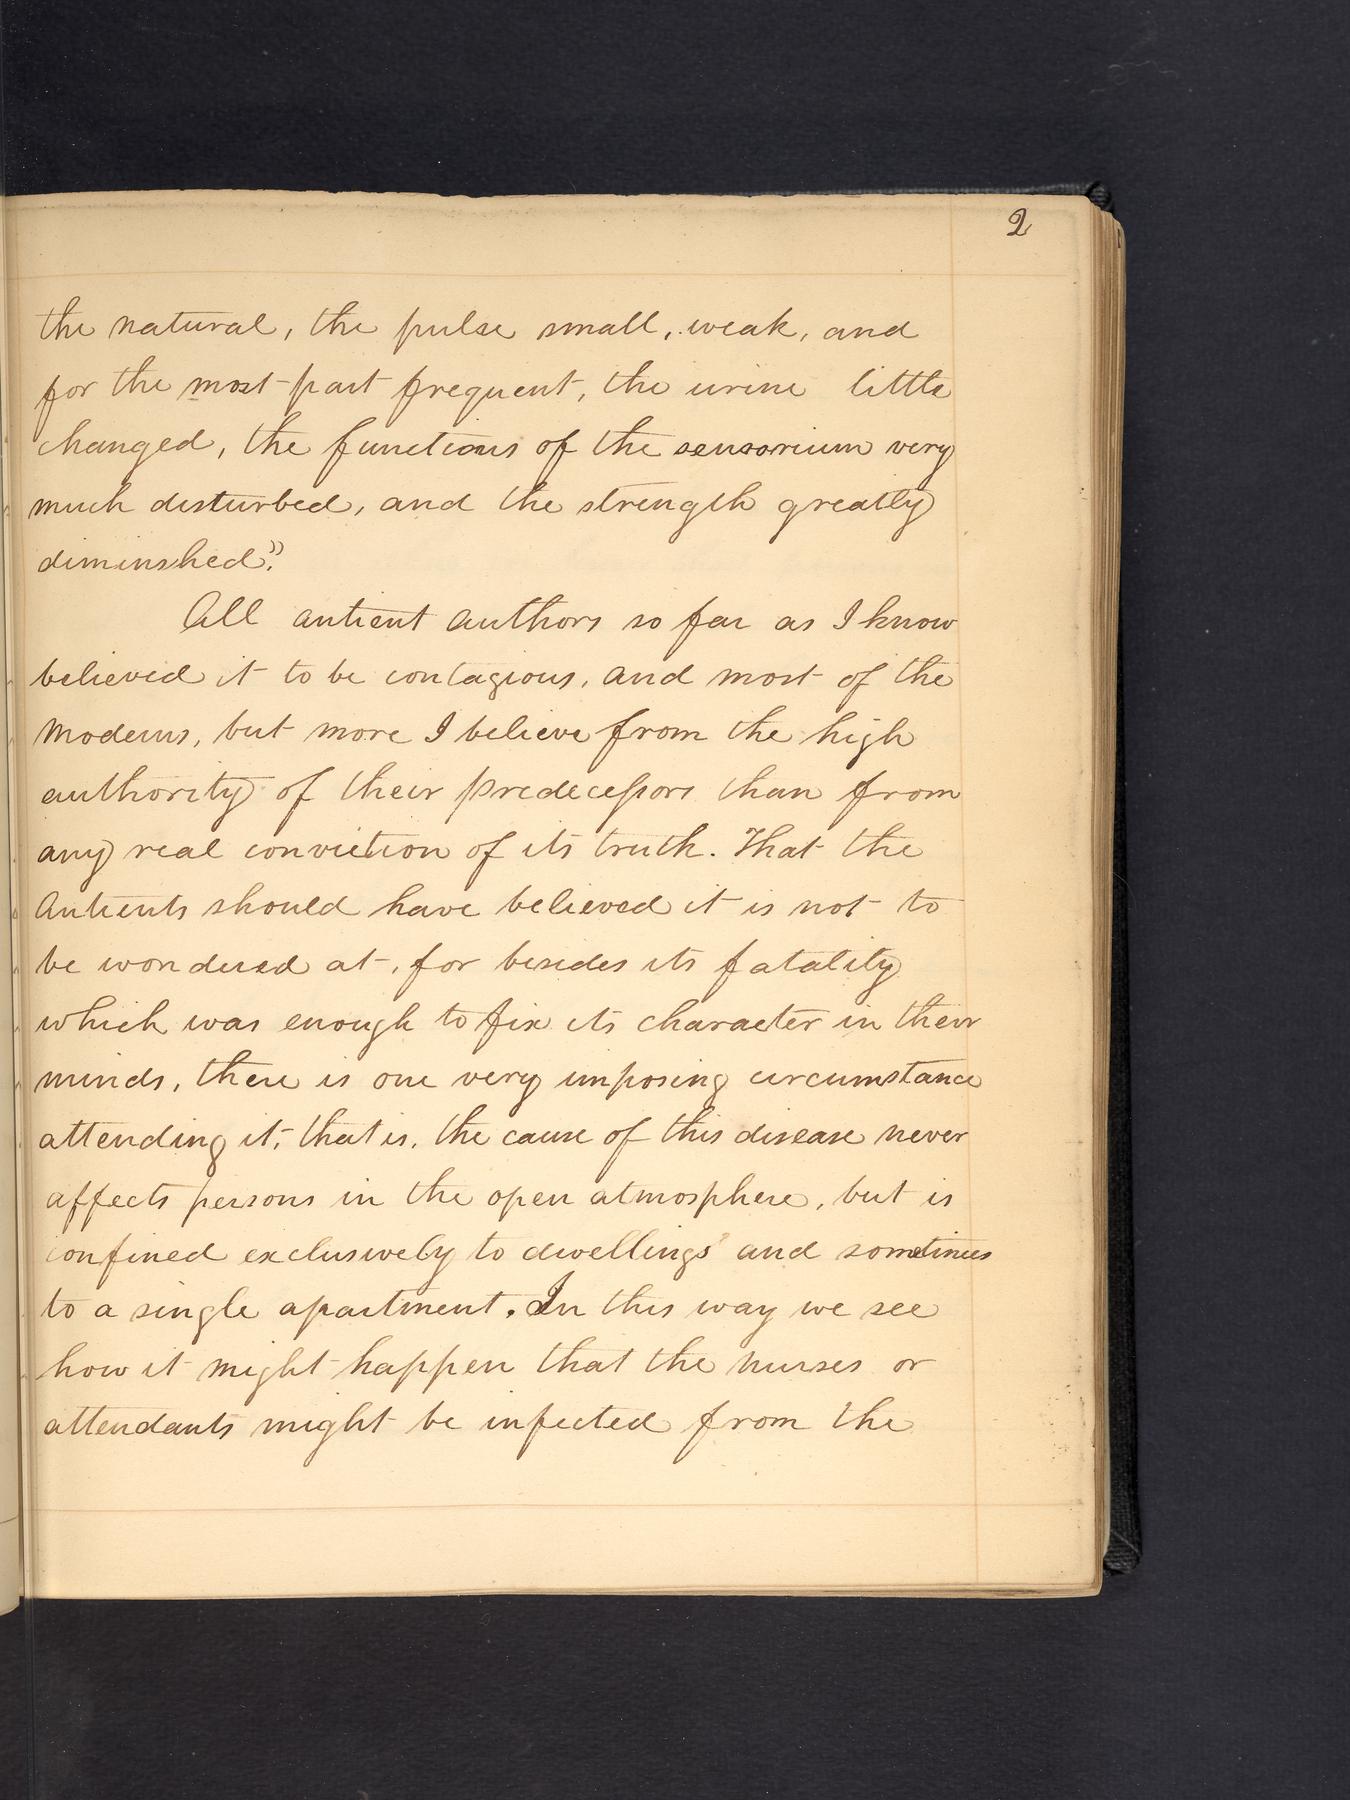 2
the natural, the pulse small, weak, and
for the most part frequent, the urine little
changed, the functions of the sensorium very
much disturbed, and the strength greatly
diminshed".
All antient authors so far as I know
believed it to be contagious, and most of the
moderns, but more I believe from the high
authority of their predecessors than from
any real conviction of its truth. That the
Antients should have believed it is not to
be wondered at, for besides its fatality
which was enough to fix its character in their
minds, there is one very imposing circumstance
attending it; that is, the cause of this disease never
affects persons in the open atmosphere, but is
confined exclusively to dwellings and sometimes
to a single apartment. In this way we see
how it might happen that the nurses or
attendants might be infected from the